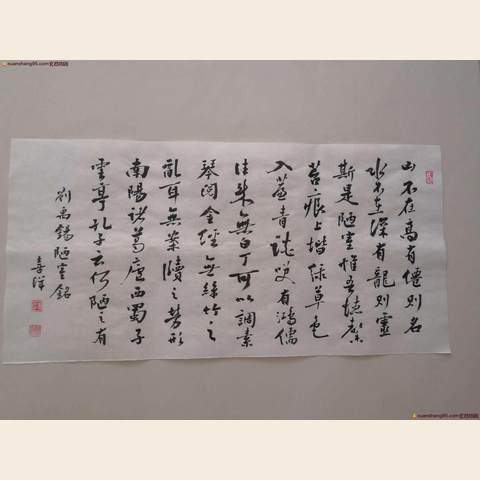 山不在高有僊則名
水不在深有龍則靈
斯是陋室惟吾德馨
苔痕上堦綠草色
入簾青談笑有鴻儒
往來無白丁可以調素
琴閱金經無絲竹之
亂耳無案牘之勞形
南陽諸葛廬西蜀子
雲亭孔子云何陋之有
劉禹錫陋室銘
喜
xuanshang95.com
xuanshang95.com